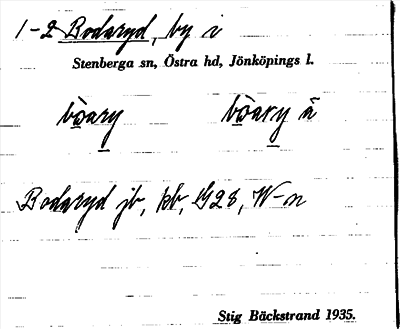 1-2 Bodaryd, by i
Stenberga sn, Östra hd, Jönköpings l.
bòary bòary å
Bodaryd jb, kb, G28, W-n
Stig Bäckstrand 1935.